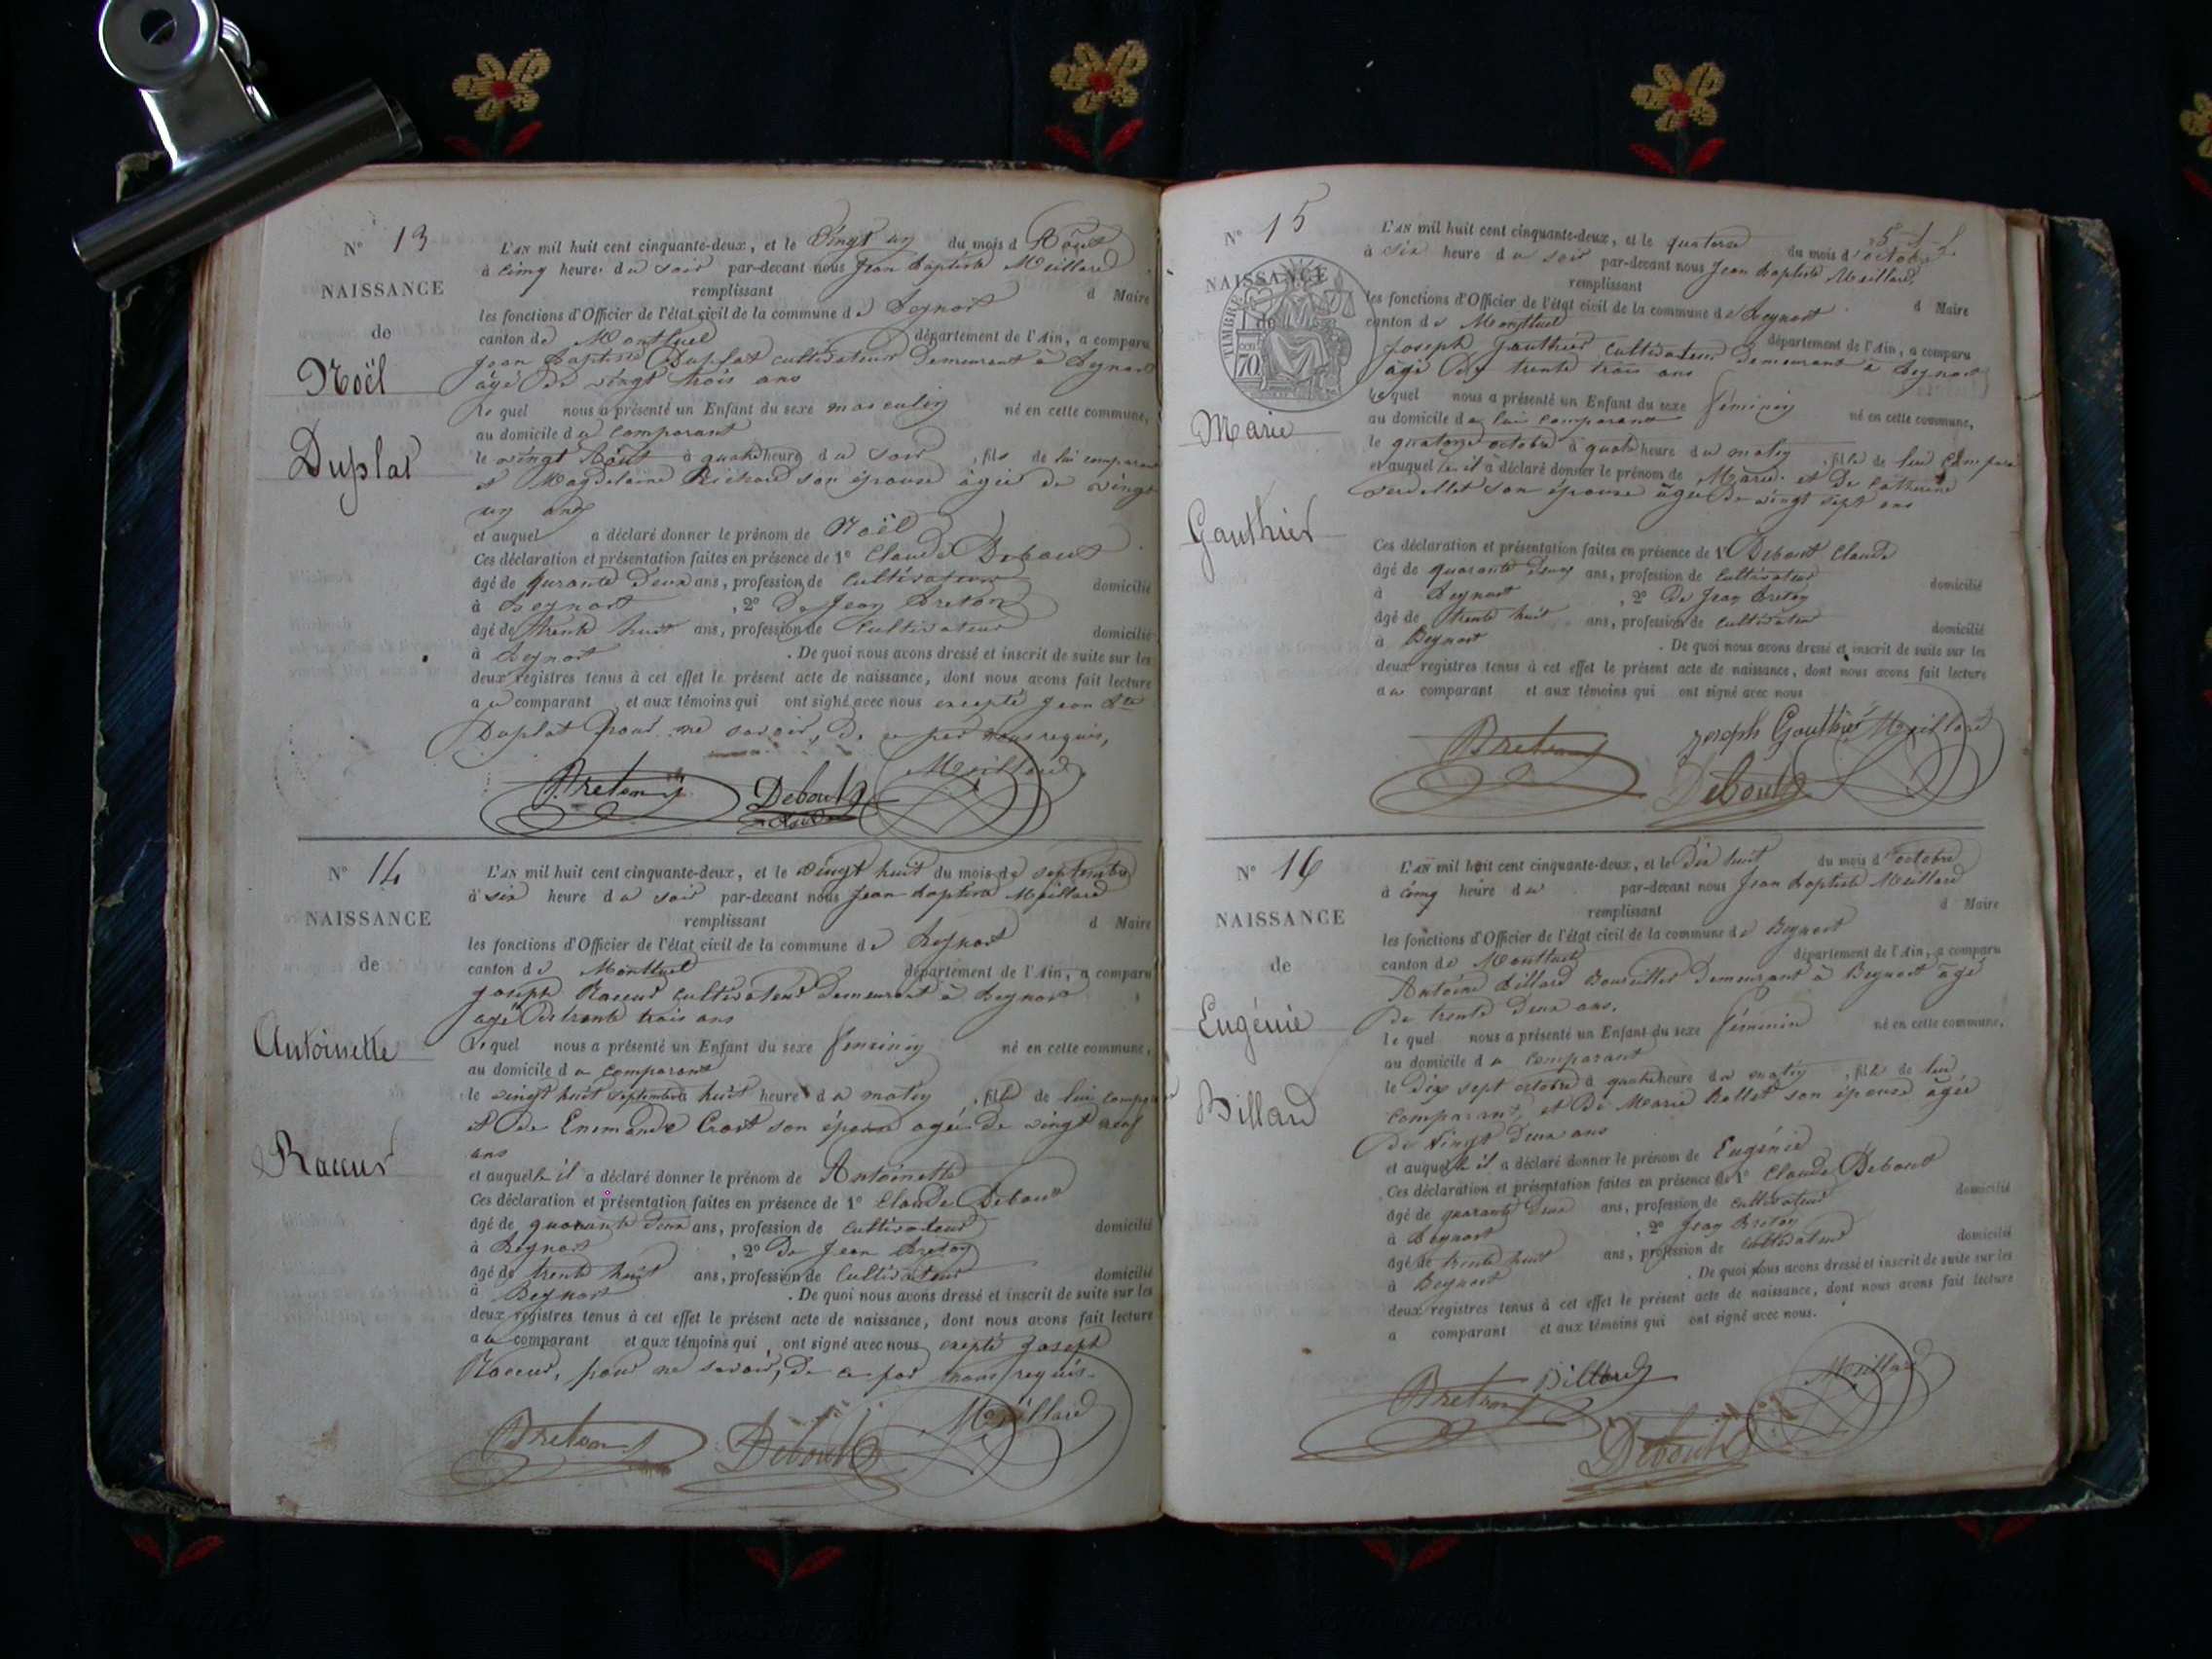 N° 13
NAISSANCE
de
Noël
Duplat
L'AN mil huit cent cinquante-deux, et le vingt un du mois d Août
à cinq heure du soir par-devant nous Jean Baptiste Meillard
remplissant d Maire
les fonctions d'Officier de l'état civil de la commune de Beynost
canton de Montluel département de l'Ain, a comparu
Jean Baptiste Duplat cultivateur demeurant à Beynost
âgé de vingt trois ans
le quel nous a présenté un Enfant du sexe masculin né en cette commune,
au domicile du comparant
le vingt Août à quatre heure du soir, fils de lui comparant
et Magdelaine Richard son épouse âgée de vingt
un ans
et auquel a déclaré donner le prénom de Noël
Ces déclaration et présentation faites en présence de 1° Claude Debout
âgé de quarante deux ans, profession de cultivateur domicilié
à Beynost, 2° De Jean Breton
âgé de trente huit ans, profession de cultivateur domicilié
à Beynost. De quoi nous avons dressé et inscrit de suite sur les
deux registres tenus à cet effet le présent acte de naissance, dont nous avons fait lecture
au comparant et aux témoins qui ont signé avec nous excepté Jean Bte
Duplat pour ne savoir, de ce per nous requis,
Breton Debout Meillard
Claude
N° 14
NAISSANCE
de
Antoinette
Raccur
L'AN mil huit cent cinquante-deux, et le vingt huit du mois de septembre
à six heure du soir par-devant nous Jean Baptiste Meillard
remplissant d Maire
les fonctions d'Officier de l'état civil de la commune de Beynost
canton de Montluel département de l'Ain, a comparu
Joseph Raccur cultivateur demeurant à Beynost
agé de trente trois ans
le quel nous a présenté un Enfant du sexe feminin né en cette commune,
au domicile du comparant
le vingt huit septembre huit heure du matin, fille de lui compara
et de Enemande Crost son épouse agée de vingt neuf
ans
et auquelle il a déclaré donner le prénom de Antoinette
Ces déclaration et présentation faites en présence de 1° Claude Debout
âgé de quarante deux ans, profession de cultivateur domicilié
à Beynost, 2° De Jean Breton
âgé de trente huit ans, profession de cultivateur domicilié
à Beynost. De quoi nous avons dressé et inscrit de suite sur les
deux registres tenus à cet effet le présent acte de naissance, dont nous avons fait lecture
au comparant et aux témoins qui ont signé avec nous excepté Joseph
Raccur, pour ne savoir, de ce par nous requis.
Breton Debout Meillard
N° 15
NAISSANCE
TIMBRE
70
Marie
Gauthier
L'AN mil huit cent cinquante-deux, et le quatorze du mois d'octobre
à six heure du soir par-devant nous Jean Baptiste Meillard,
remplissant d Maire
les fonctions d'Officier de l'état civil de la commune de Beynost
canton de Montluel département de l'Ain, a comparu
Joseph Gauthier cultivateur demeurant à Beynost
agé de trente trois ans
le quel nous a présenté un Enfant du sexe féminin né en cette commune,
au domicile de lui comparant
le quatorze octobre à quatre heure du matin, fille de lui compara
et auquel le il a déclaré donner le prénom de Marie. et De Catherine
Verdellet son épouse âgée de vingt sept ans
Ces déclaration et présentation faites en présence de 1° Debout Claude
âgé de quarante deux ans, profession de cultivateur domicilié
à Beynost, 2° De Jean Breton
âgé de trente huit ans, profession de cultivateur domicilié
à Beynost. De quoi nous avons dressé et inscrit de suite sur les
deux registres tenus à cet effet le présent acte de naissance, dont nous avons fait lecture
au comparant et aux témoins qui ont signé avec nous
Breton Joseph Gauthier Meillard
Debout
N° 16
NAISSANCE
de
Eugénie
Billard
L'AN mil huit cent cinquante-deux, et le dix huit du mois d'octobre
à cinq heure du par-devant nous Jean Baptiste Meillard
remplissant d Maire
les fonctions d'Officier de l'état civil de la commune de Beynost
canton de Montluel département de l'Ain, a comparu
Antoine Billard Bourellier demeurant à Beynost âgé
de trente deux ans.
le quel nous a présenté un Enfant du sexe féminin né en cette commune,
au domicile du comparant
le dix sept octobre à quatre heure du matin, fille de lui
comparant, et De Marie Rollet son épouse âgée
de vingt deux ans
et auquelle il a déclaré donner le prénom de Eugénie
Ces déclaration et présentation faites en présence de 1° Claude Debout
âgé de quarante deux ans, profession de cultivateur domicilié
à Beynost, 2° Jean Breton
âgé de trente huit ans, profession de cultivateur domicilié
à Beynost. De quoi nous avons dressé et inscrit de suite sur les
deux registres tenus à cet effet le présent acte de naissance, dont nous avons fait lecture
a comparant et aux témoins qui ont signé avec nous.
Breton Billard Meillard
Debout